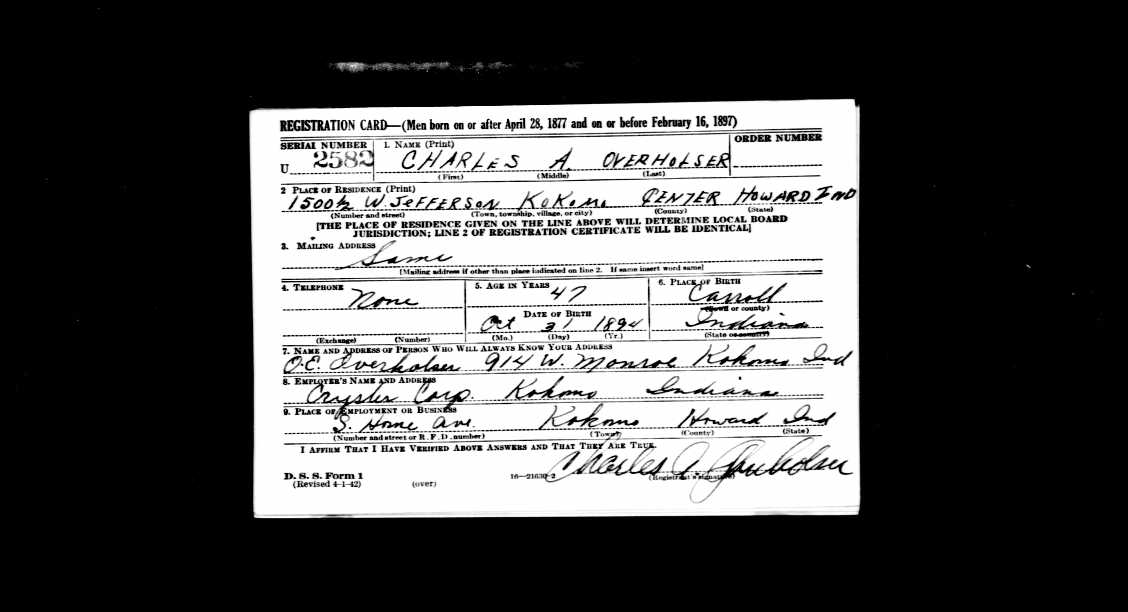 REGISTRATION CARD—(Men born on or after April 28, 1877 and on or before February 16, 1897)
SERIAL NUMBER 1. NAME (Print) ORDER NUMBER
U 2582 CHARLES A. OVERHOLSER
(First) (Middle) (Last)
2 PLACE OF RESIDENCE (Print)
1500½ W. JEFFERSON KOKOMO CENTER HOWARD IND
(Number and street) (Town, township, village, or city) (County) (State)
[THE PLACE OF RESIDENCE GIVEN ON THE LINE ABOVE WILL DETERMINE LOCAL BOARD
JURISDICTION; LINE 2 OF REGISTRATION CERTIFICATE WILL BE IDENTICAL]
3. MAILING ADDRESS
Same
[Mailing address if other than place indicated on line 2. If same insert word same]
4. TELEPHONE 5. AGE IN YEARS 6. PLACE OF BIRTH
None 47 Carroll
DATE OF BIRTH (Town or county)
Oct 31 1894 Indiana
(Exchange) (Number) (Mo.) (Day) (Yr.) (State or country)
7. NAME AND ADDRESS OF PERSON WHO WILL ALWAYS KNOW YOUR ADDRESS
O.E. Overholser 914 W. Monroe Kokomo Ind
8. EMPLOYER'S NAME AND ADDRESS
Crysler Corp. Kokomo Indiana
9. PLACE OF EMPLOYMENT OR BUSINESS
S. Home Ave. Kokomo Howard Ind
(Number and street or R. F. D. number) (Town) (County) (State)
I AFFIRM THAT I HAVE VERIFIED ABOVE ANSWERS AND THAT THEY ARE TRUE.
D. S. S. Form 1 16—21630-2 Charles A Overholser
(Revised 4-1-42) (over) (Registrant's signature)